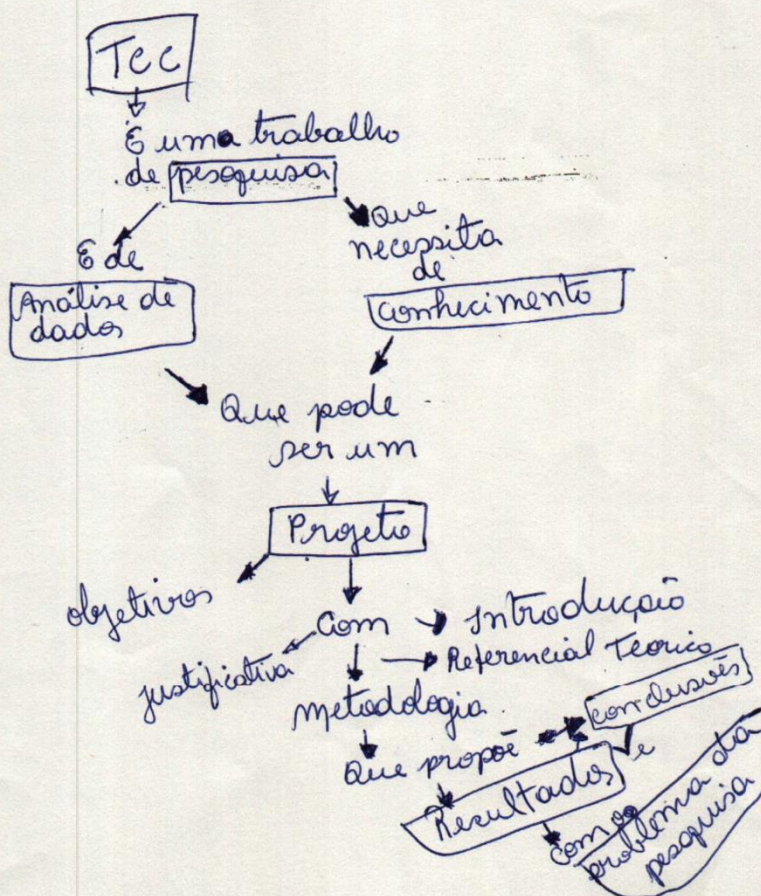 TCC
É uma trabalho
de pesquisa
E de
Análise de
dados
Que
necessita
de
conhecimento
Que pode
ser um
Projeto
objetivos
com
Introdução
justificativa
Referencial Teorico
metodologia
Que propoē
conclusões
Resultados
e
com os
problema da
pesquisa